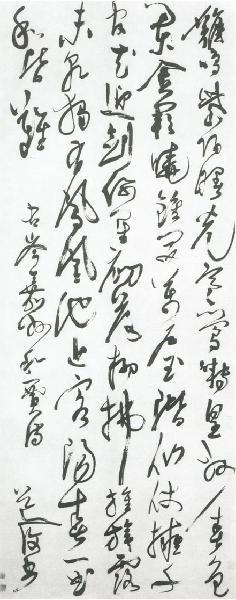 雞鳴紫陌曙光寒鶯囀皇州春色
闌金闕曉鐘開萬戶玉階仙仗擁千
官花迎劍佩星初落柳拂旌旗露
未乾獨有鳳凰池上客陽春一曲
和皆難
右岑嘉州和賈
道復書